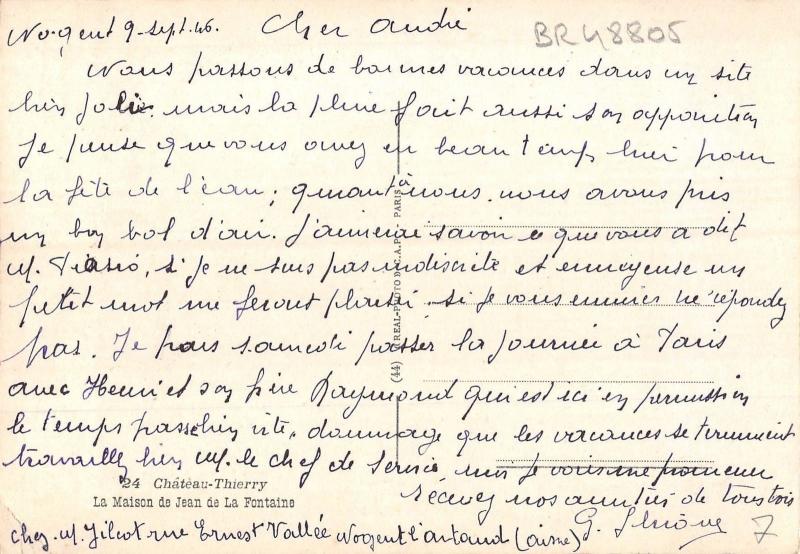 Nogent 9-sept. 46. Cher André
BR48805
Nous passons de bonnes vacances dans un site
bien joli. mais la pluie fait aussi son apparition
Je pense que vous avez eu beau temps hier pour
la fête de l'eau; quant à nous. nous avons pris
un bon bol d'air. J'aimerai savoir ce que vous a dit
M. si je ne suis pas indiscrète et ennuyeuse un
petit mot me ferait plaisir. si je vous ennuie ne répondez
pas. Je pars samedi passer la journée à Paris
avec Henri et son frère Raymond qui est ici en permission
le temps passe bien vite. dommage que les vacances se terminent
travaillez bien M. le chef de service moi je vais me promener
recevez nos amitiés de tous trois
G.
(44) REAL-PHOTO C.A.P. PARIS
24 Château-Thierry
La Maison de Jean de La Fontaine
chez M. rue Ernest Vallée Nogent l'artaud (aisne)
7